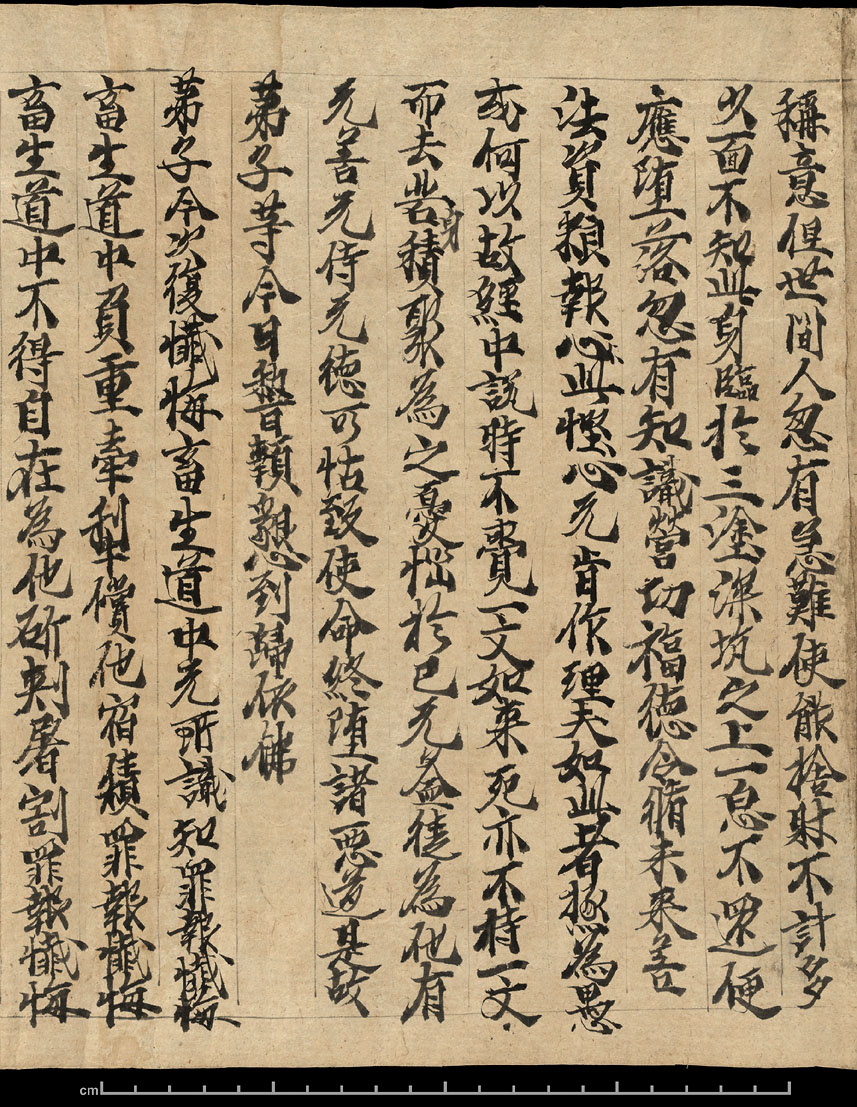 稱意但世間人忽有急難使能捨財不計多
少一面不知此身臨於三塗深坑之上一息不還便
應墮落忽有知識營切福德令脩未來善
法資粮報心此慳心无肯作理夫如此者極為愚
或何以故經中說時不賷一文如來死亦不持一文
而去苦身積聚為之憂惱於已无益徒為他有
无善无侍无德可怙致使命終墮諸惡道是故
弟子等今日稽顙懇到歸依佛
弟子今次復懺悔畜生道中无所識知罪報懺悔
畜生道中負重牽利牛償他宿積罪報懺悔
畜生道中不得自在為他斫刺屠割罪報懺悔
cm